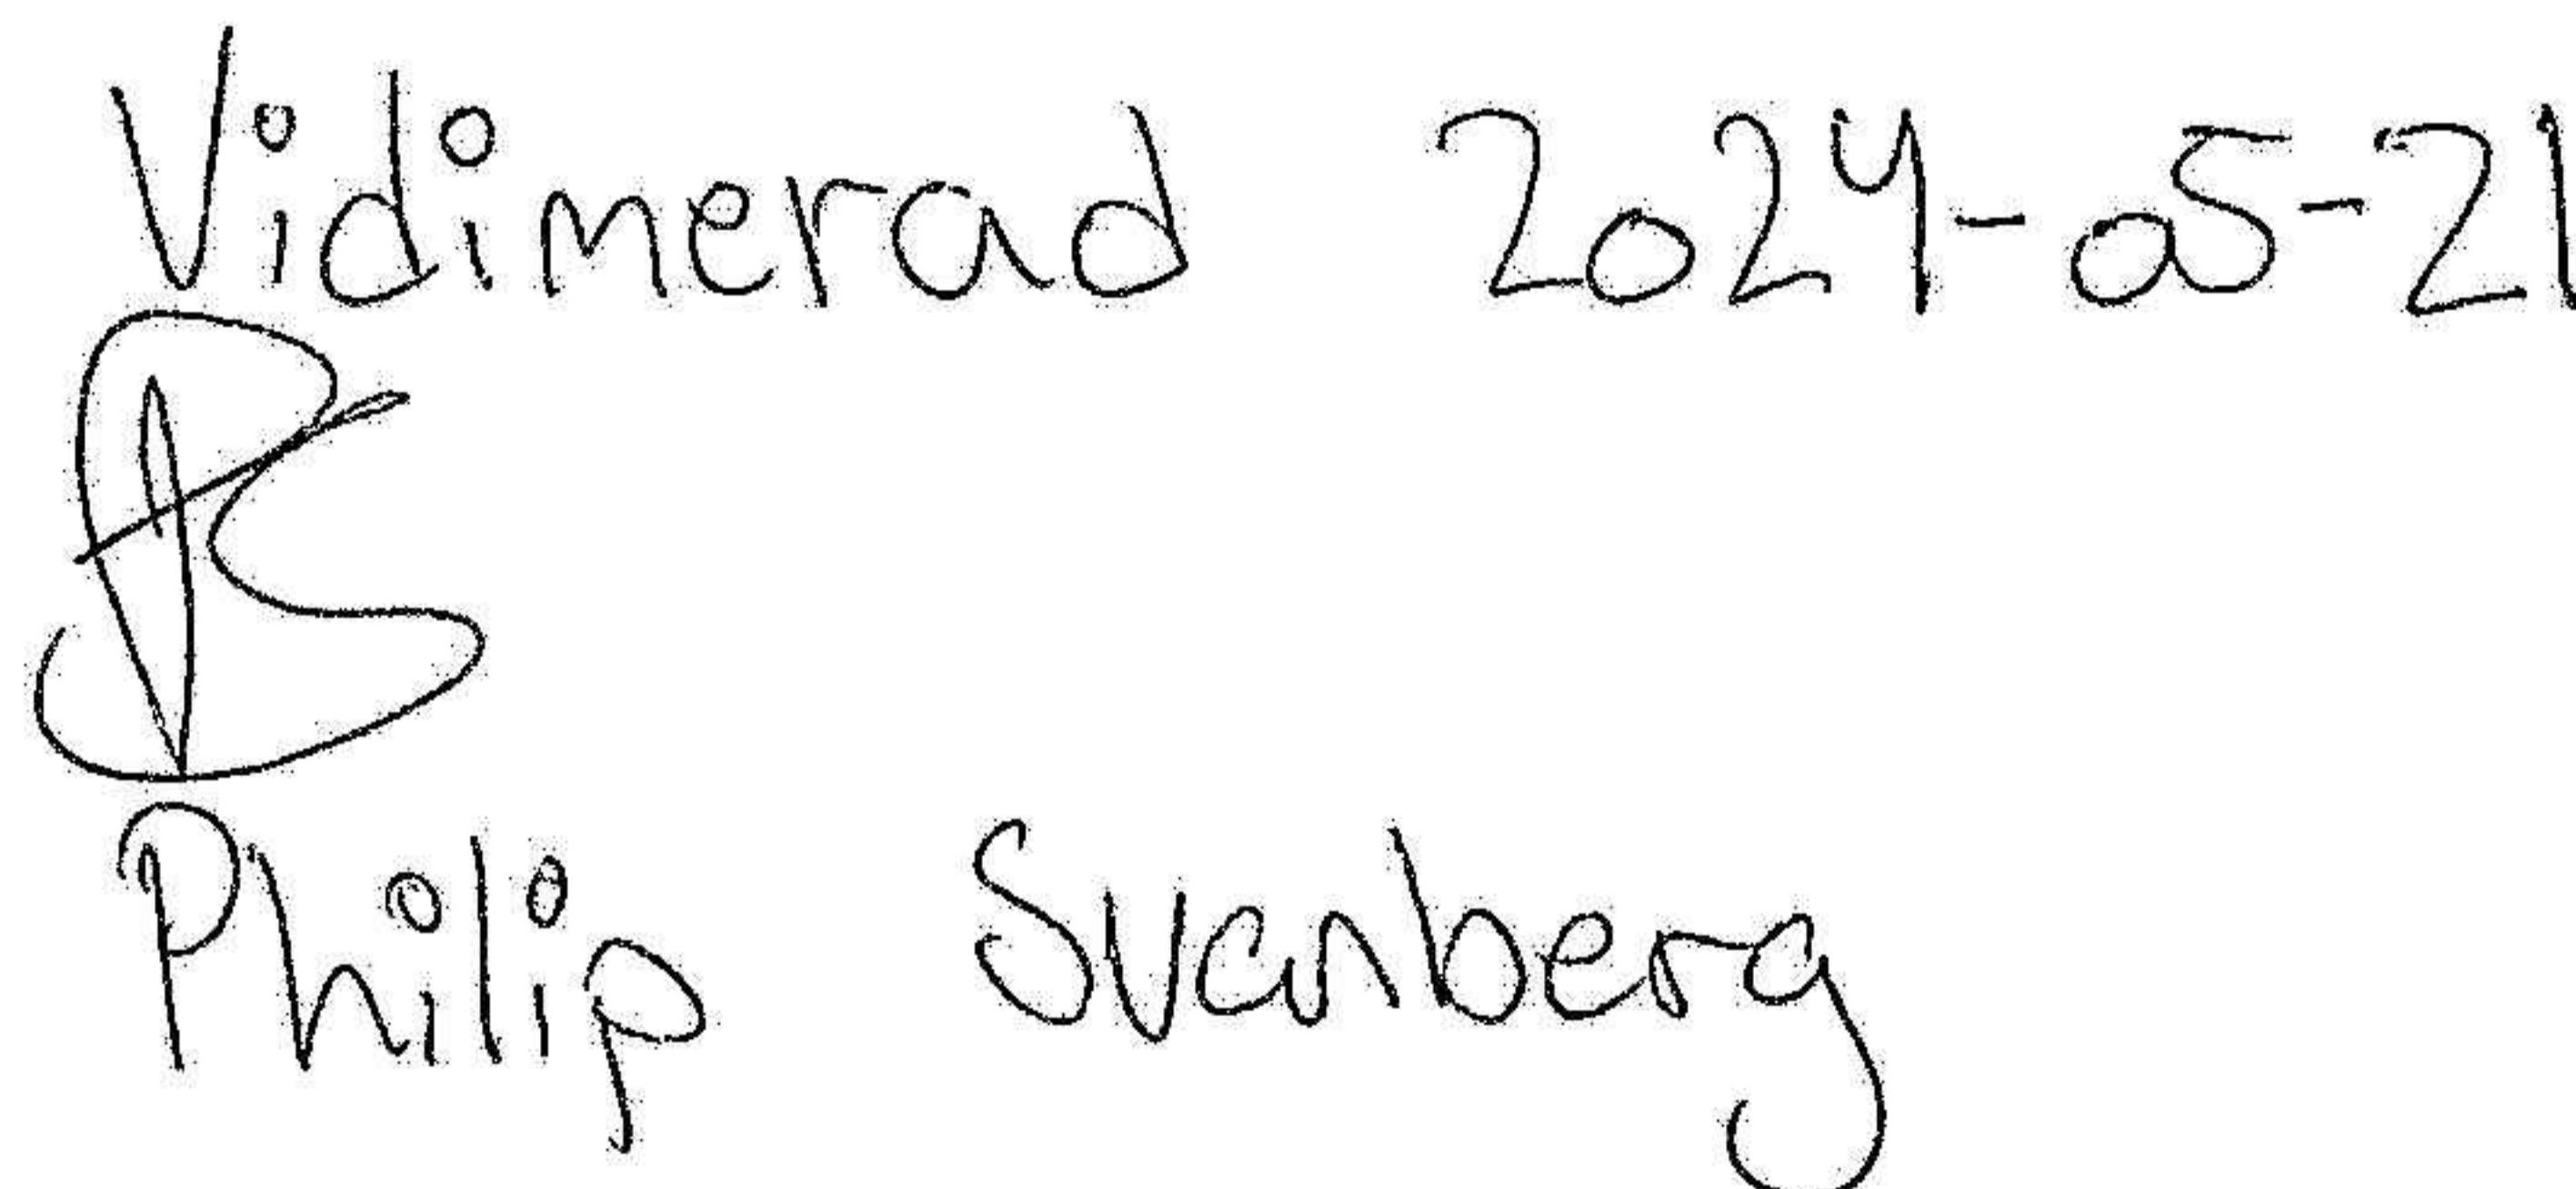 Vidimerad 2024-05-21
Philip Svanberg